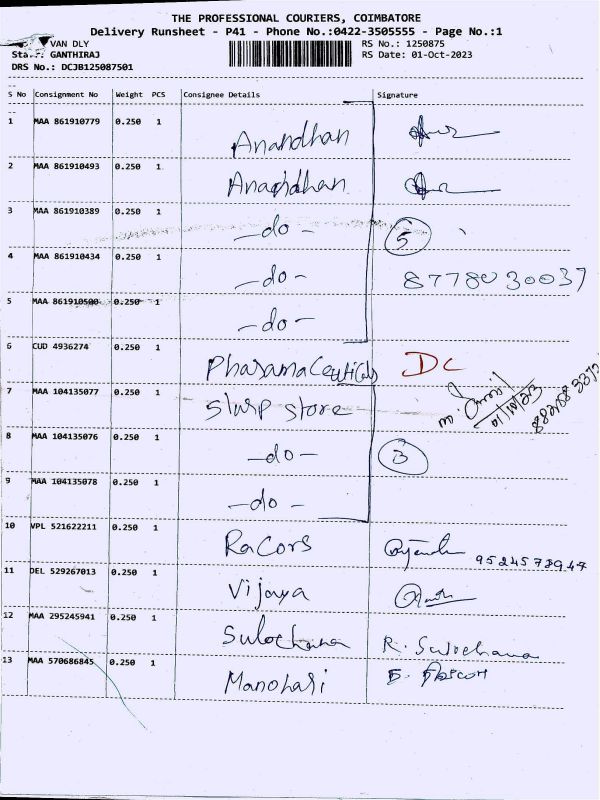 THE PROFESSIONAL COURIERS, COIMBATORE
Delivery Runsheet - P41 - Phone No.:0422-3505555 - Page No.:1
VAN DLY
RS No.: 1250875
GANTHIRAJ
RS Date: 01-Oct-2023
DRS No.: DCJB125087501
S No Consignment No Weight PCS Consignee Details Signature
1 MAA 861910779 0.250 1 Anandhan
2 MAA 861910493 0.250 1 Anandhan
3 MAA 861910389 0.250 1 -do- 5
4 MAA 861910434 0.250 1 -do- 8778030037
5 MAA 861910500 0.250 1 -do-
6 CUD 4936274 0.250 1 Pharamaceuticals DC
7 MAA 104135077 0.250 1 Slurp store 01/10/23
8 MAA 104135076 0.250 1 -do- 3
9 MAA 104135078 0.250 1 -do-
10 VPL 521622211 0.250 1 Racors
11 DEL 529267013 0.250 1 Vijaya
12 MAA 295245941 0.250 1 Sulochana R. Sulochana
13 MAA 570686845 0.250 1 Manohari